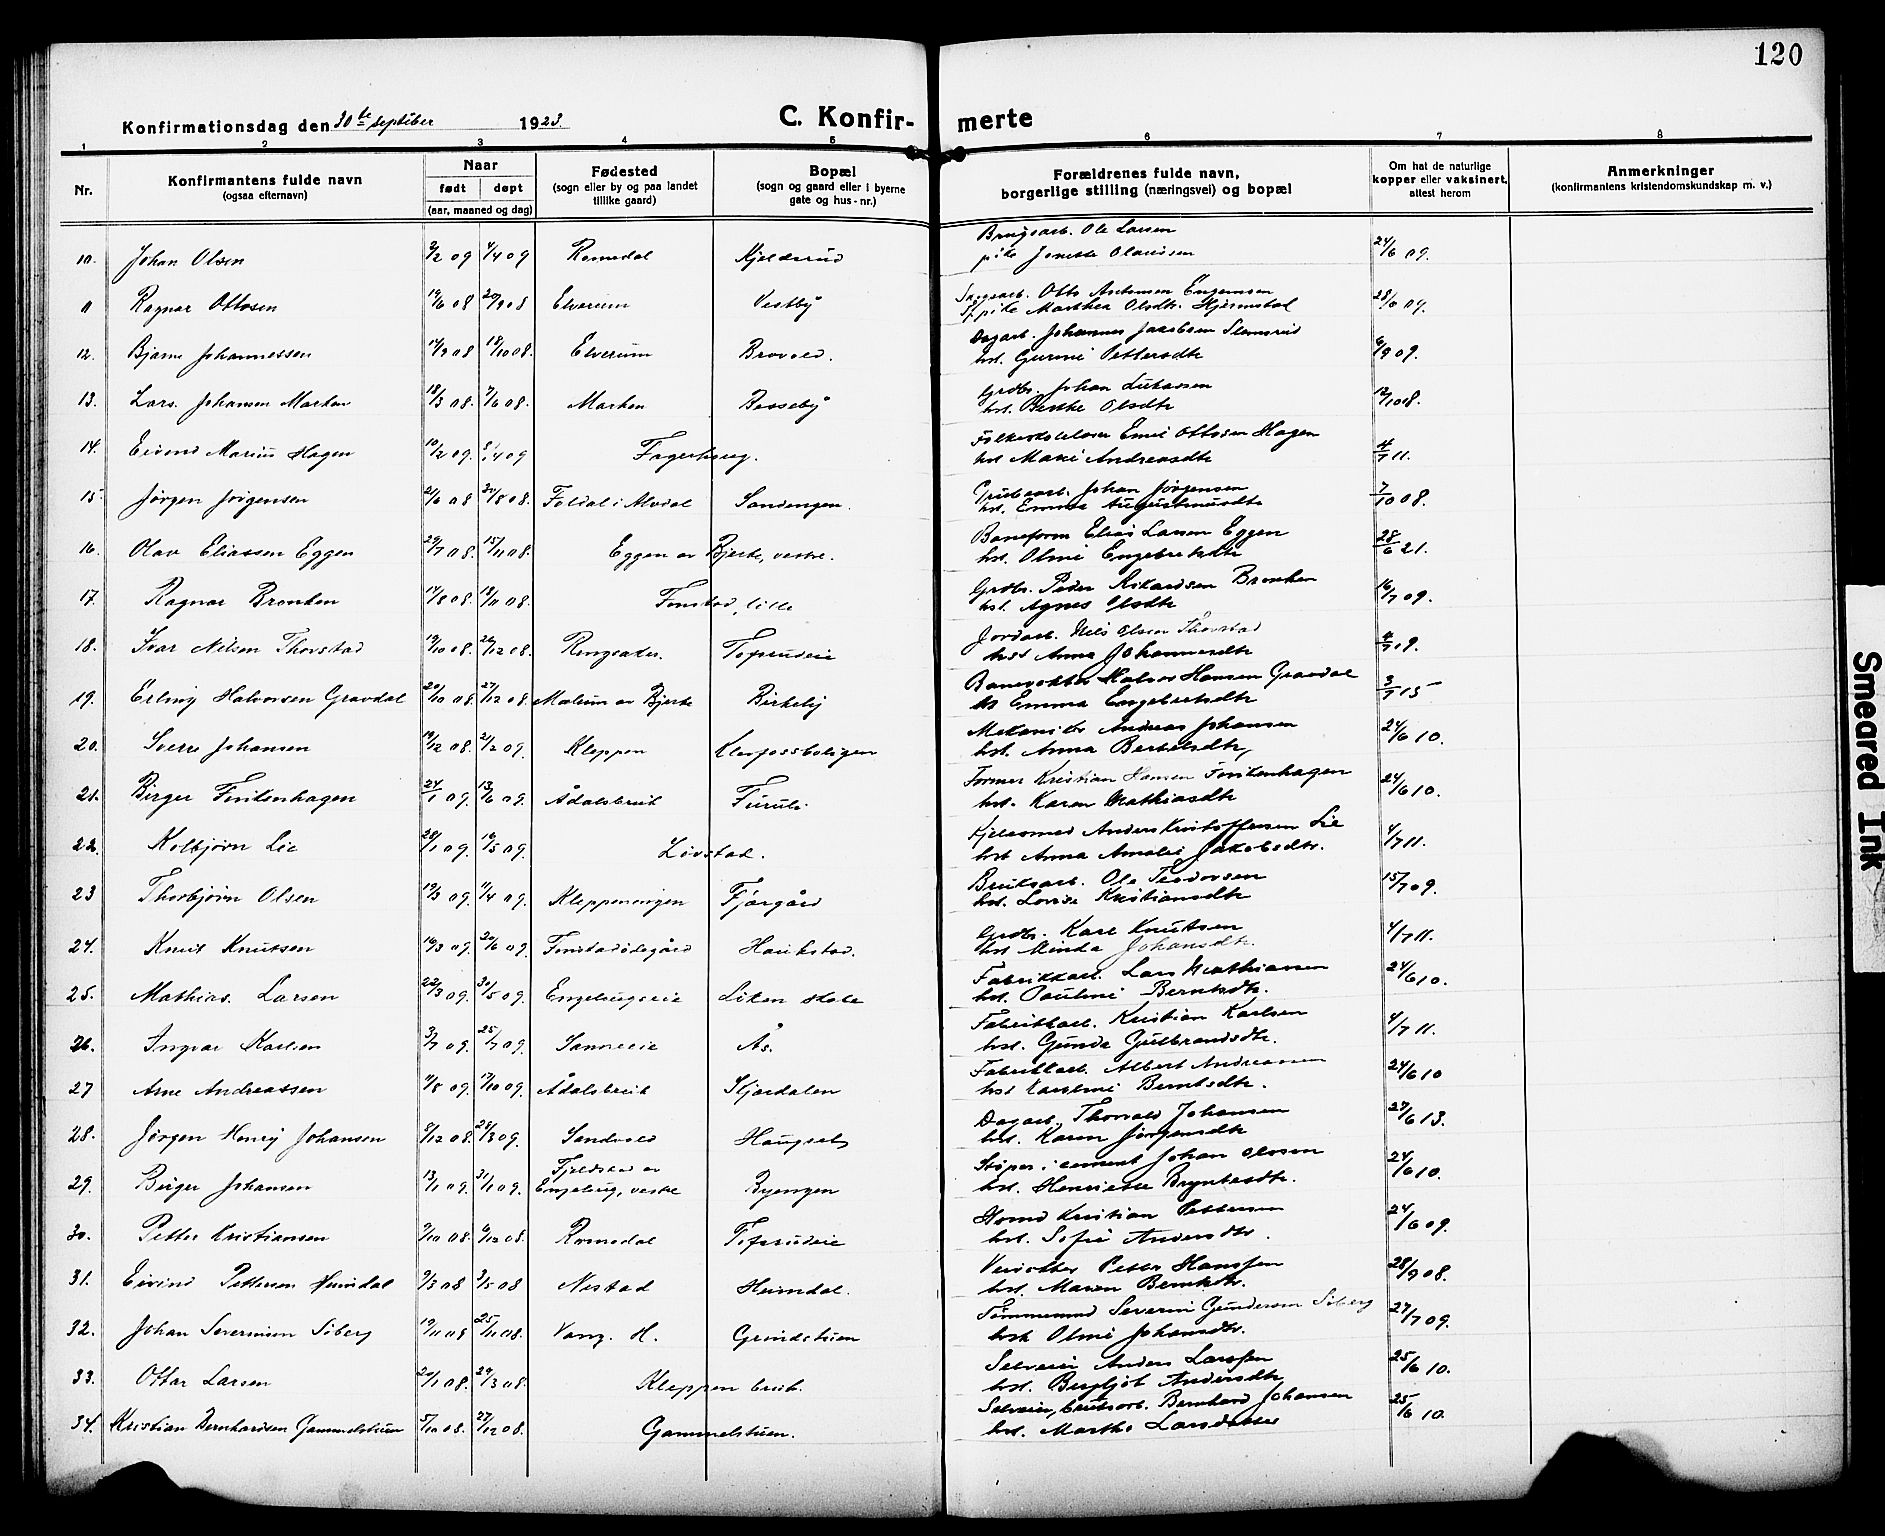 120
Konfirmationsdag den 30te september 1923.
C. Konfirmerte
1 2 3 4 5 6 7 8
Nr.
Konfirmantens fulde navn
(ogsaa efternavn)
Naar
født døpt
(aar, maaned og dag)
Fødested
(sogn eller by og paa landet
tillike gaard)
Bopæl
(sogn og gaard eller i byerne
gate og hus-nr.)
Forældrenes fulde navn,
borgerlige stilling (næringsvei) og bopæl
Om hat de naturlige
kopper eller vaksinert,
attest herom
Anmerkninger
(konfirmantens kristendomskundskap m. v.)
Brugsarb. Ole Larsen
10. Johan Olsen 3/2 09 4/4 09 Romedal Kjeldsrud pike Jonette Olausen 24/6 09.
Sagarb. Otto Antonsen Engemoen
11 Ragnar Ottosen 19/6 08 20/9 08 Elverum Vestby pike Marthea Olsdtr. Hjermstad 09.
Dagarb. Johannes Jacobsen Slemsrud
12. Bjarne Johannessen 14/9 08 18/10 08. Elverum Brovold. hst. Gurine Pettersdtr 6/9 09.
Grdbr. Johan Lukassen
13. Lars Johansen Marken 18/3 08. 7/6 08. Marken Basseby hst. Berthe Olsdtr 12/10 08.
Emil Ottosen Hagen
14. Eivind Marius Hagen 10/2 09. 4 09 Fagerhaug. hst. Marie Andreasdtr 4/7 11.
Grubearb. Johan Jørgensen
15. Jørgen Jørgensen 21/6 08 30/8 08. Foldal i Alvdal Sandengen. hst. Emma Augustinusdtr 7/10 08.
Baneform. Elias Larsen Eggen
16. Olav Eliassen Eggen 29/7 08. 15/11 08. Eggen av Bjerke, vestre. hst. Oline Engebretsdtr 28/6 21.
Grdbr. Peder Rikardsen Bronken
17. Ragnar Bronken 14/8 08. 18/11 08. Finstad, lille hst. Agnes Olsdtr 16/7 09.
Jordarb. Nils Olsen Thorstad
18. Ivar Nilsen Thorstad 19/10 08. 26/12 08. Ringsaker. Tofsrudeie hst Anna Johannesdtr 4/7 09.
Banevokter Halvor Hansen Gravdal
19. Erling Halvorsen Gravdal 20/10 08. 27/12 08. Mælum av Bjerke Birkeby hst Emma Engebretsdtr 3/7 15
Mekaniker Andreas Johansen
20. Sverre Johansen 19/12 08. 21/2 09. Kleppen Klevfossboligen hst. Anna Bertelsdtr, 24/6 10.
Former Kristian Hansen Finkenhagen
21. Birger Finkenhagen 24/1 09. 13/6 09. Ådalsbruk Furuli hst. Karen Mathiasdtr 24/6 10.
Kjelesmed Anders Kristoffersen Lie
22. Kolbjørn Lie 28/1 09. 16/5 09. Løvstad. hst Anna Amalie Jakobsdtr. 4/7 11.
Bruksarb. Ole Teodorsen
23 Thorbjørn Olsen 19/3 09. 11/4 09. Kleppeningen Fjørgård hst. Lovise Kristiansdtr 15/7 09.
Grdbr. Kare Knutsen
24. Knut Knutsen 16/3 09. 20/6 09 Finstadødegård Haukstad. hst Minda Johansdtr. 4/7 11.
Fabrikkarb. Lars Mathiassen
25. Mathias Larsen 22/3 09. 30/5 09. Engelaugseie Liken skole hst. Pauline Berntsdtr. 24/6 10.
Fabrikkarb. Kristian Karlsen
26. Ingvar Karlsen 3/7 09. 25/7 09. Sanneeie Ås. hst. Gunda Gulbrandsdtr. 4/7 11.
Fabrikkarb. Albert Andreassen
27 Arne Andreassen 11/8 09. 17/10 09. Ådalsbruk Skjærdalen hst Karoline Berntsdtr. 24/6 10
Dagarb. Thorvald Johansen
28. Jørgen Henry Johansen 8/12 08. 28/3 09. Sandvold Haugset hst. Karen Jørgensdtr 27/6 13.
Fjeldstad av
Støper i cement Johan Olssen
29. Birger Johansen 13/1 09. 31/1 09. Engelaug, vestre Byengen hst. Henriette Bryntesdtr. 24/6 10.
Kristian Pettersen
30. Petter Kristiansen 9/10 08. 6/12 08. Romedal Tofsrudeie hst. Sofie Andersdtr. 24/6 09.
Veivokter Petter Hanssen
31. Eivind Pettersen Heimdal 9/3 08 3/5 08 Nestad Heimdal. hst. Maren Berntsdtr. 28/9 08.
Tømmermand Severin Gundersen Siberg
32. Johan Severinsen Siberg 19/11 08 25/11 08. Vang. H. Grindstuen hst Oline Johansdtr. 27/7 09.
Selveier Anders Larssen
33. Ottar Larsen 20/1 08. 29/3 08. Kleppen bruk. hst. Bergljot Andersdtr 25/6 10.
Selveier, bruksarb. Bernhard Johansen
34. Kristian Bernhardsen Gammelstuen 5/10 08. 27/12 08. Gammelstuen. hst. Marthe Larsdatter 25/6 10.
Smeared Ink